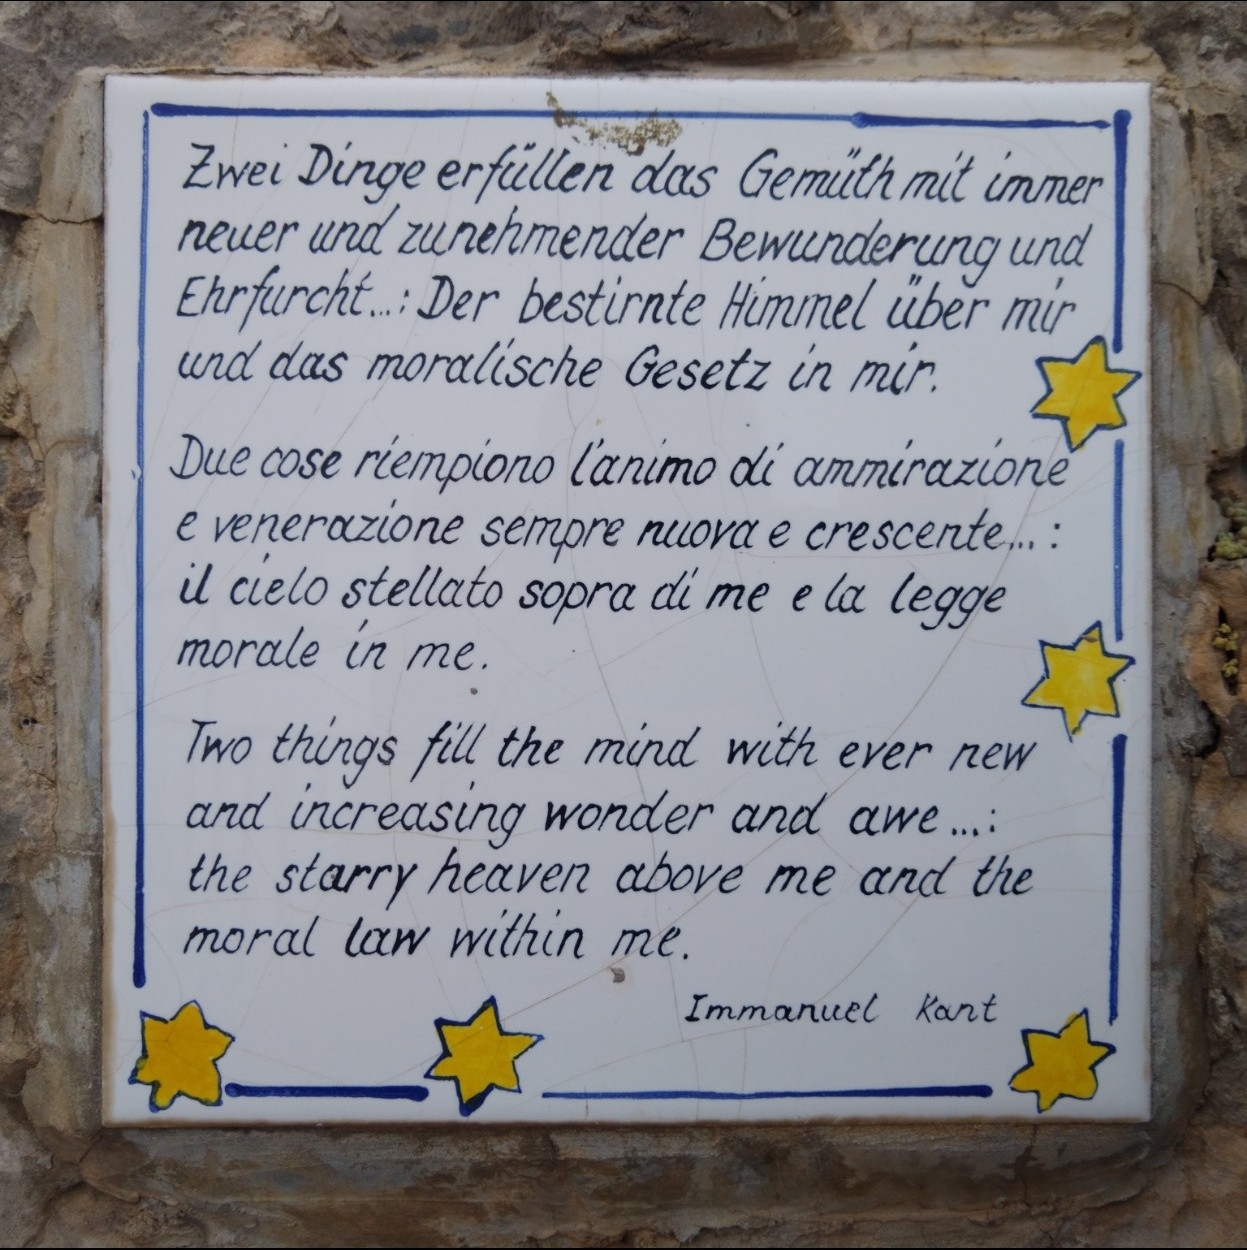 Zwei Dinge erfüllen das Gemüth mit immer
neuer und zunehmender Bewunderung und
Ehrfurcht...: Der bestirnte Himmel über mir
und das moralische Gesetz in mir.
Due cose riempiono l'animo di ammirazione
e venerazione sempre nuova e crescente...:
il cielo stellato sopra di me e la legge
morale in me.
Two things fill the mind with ever new
and increasing wonder and awe...:
the starry heaven above me and the
moral law within me.
Immanuel Kant